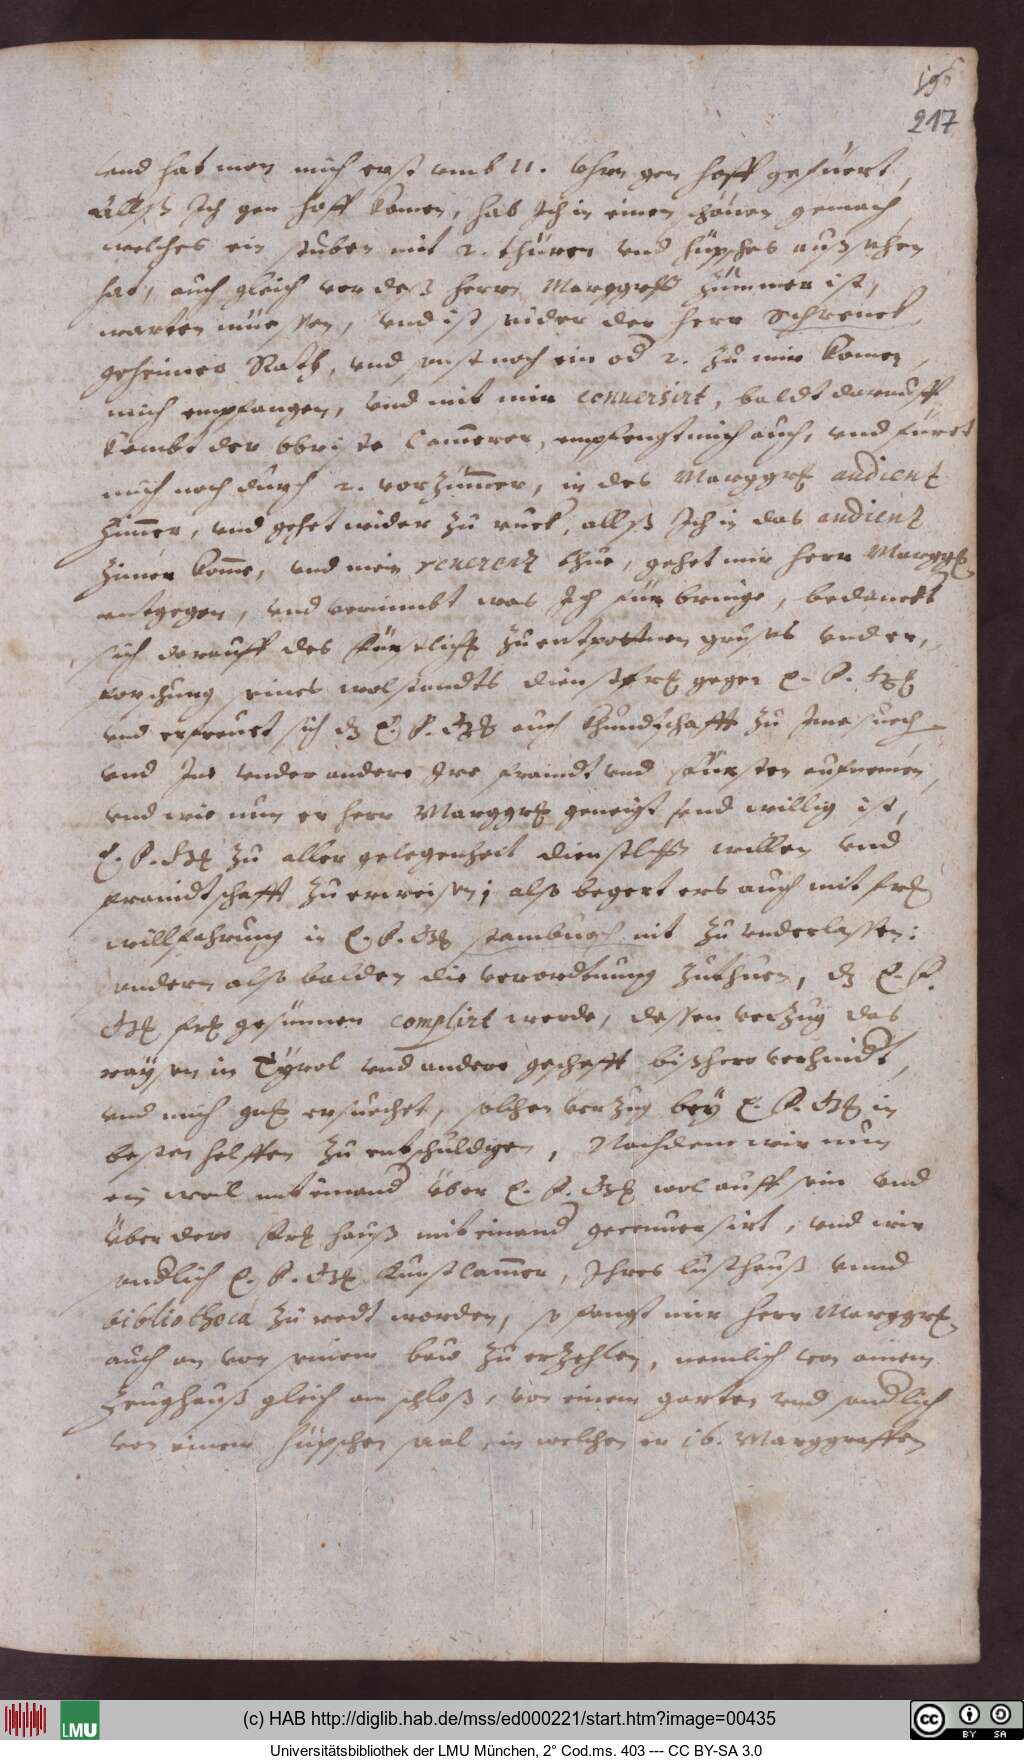 196
217
und hat man mich erst umb 11. Uhrn gen hoff gefüert,
Allß Ich gen hoff komen, hab Ich in einen schönen gemach,
welches ein stuben mit 2. thüren und hüpsches außsehen
hat, auch gleich vor deß herrn Marggrf Zümmer ist,
warten müessen, und ist wider der herr Schrenck,
geheimer Rath, und sonst noch ein od 2. zu mir komen,
mich empfangen, und mit mir conuersirt, baldt darauff
kombt der obriste Cammerer, empfengt mich auch, und füert
mich noch durch 2. vorzimmer, in des Marggrf audientz
Zimmer, und gehet wider zu ruck, allß Ich in das audientz
Zimer komme, und mein reuerentz thue, gehet mir herr Marggrf
entgegen, und vernimbt was Ich für bringe, bedanckt
sich darauff des fürstlichen zuentpottnen gruses und er,
forschung seines wolstandts dienstfrf gegen E. F. Gn
und erfreut sich dz E. F. Gn auch khundtschafft zu Ime suech
und Ine under andere Ire fraindt und fürsten aufnemen,
und wie nun er herr Marggrf geneigt und willig ist,
E. F. Gn zu aller gelegenheit dienstlichen willen und
fraindtschafft zu erweisen; also begert ers auch mit
willfahrung in E. F. Gn stambuech nit zu underlassen:
sondern also balden die verordtnung zuthuen, dz E. F.
Gn gesünnen complirt werde, dessen verzug das
raysen in Tyrol und andere geschefft bißhero verhindt,
und mich ersuechet, solchen verzug bey E. F. Gn in
besten helffen zu entschuldigen, Nachdeme wir nun
ein weil miteinand über E. F. Gn wolauff sein und
über dero hauß miteinand geconuersirt, und wir
endlich E. F. Gn Kunstcammer, Ihres lusthauß unnd
bibliotheca zu redt worden, so fangt mir herr Marggrf
auch an von seinem baw zu erzehlen, nemlich von ainem
Zeughauß gleich am schloß, von einem garten und endlich
von einem hüpschen saal, in welchen er 16. Marggraffen
(c) HAB http://diglib.hab.de/mss/ed000221/start.htm?image=00435
LMU
BY SA
Universitätsbibliothek der LMU München, 2° Cod.ms. 403 --- CC BY-SA 3.0